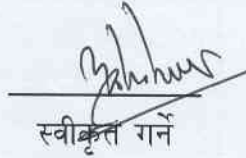 स्वीकृत गर्ने